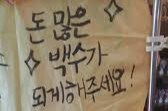 돈 많은
백수가
되게해주세요!